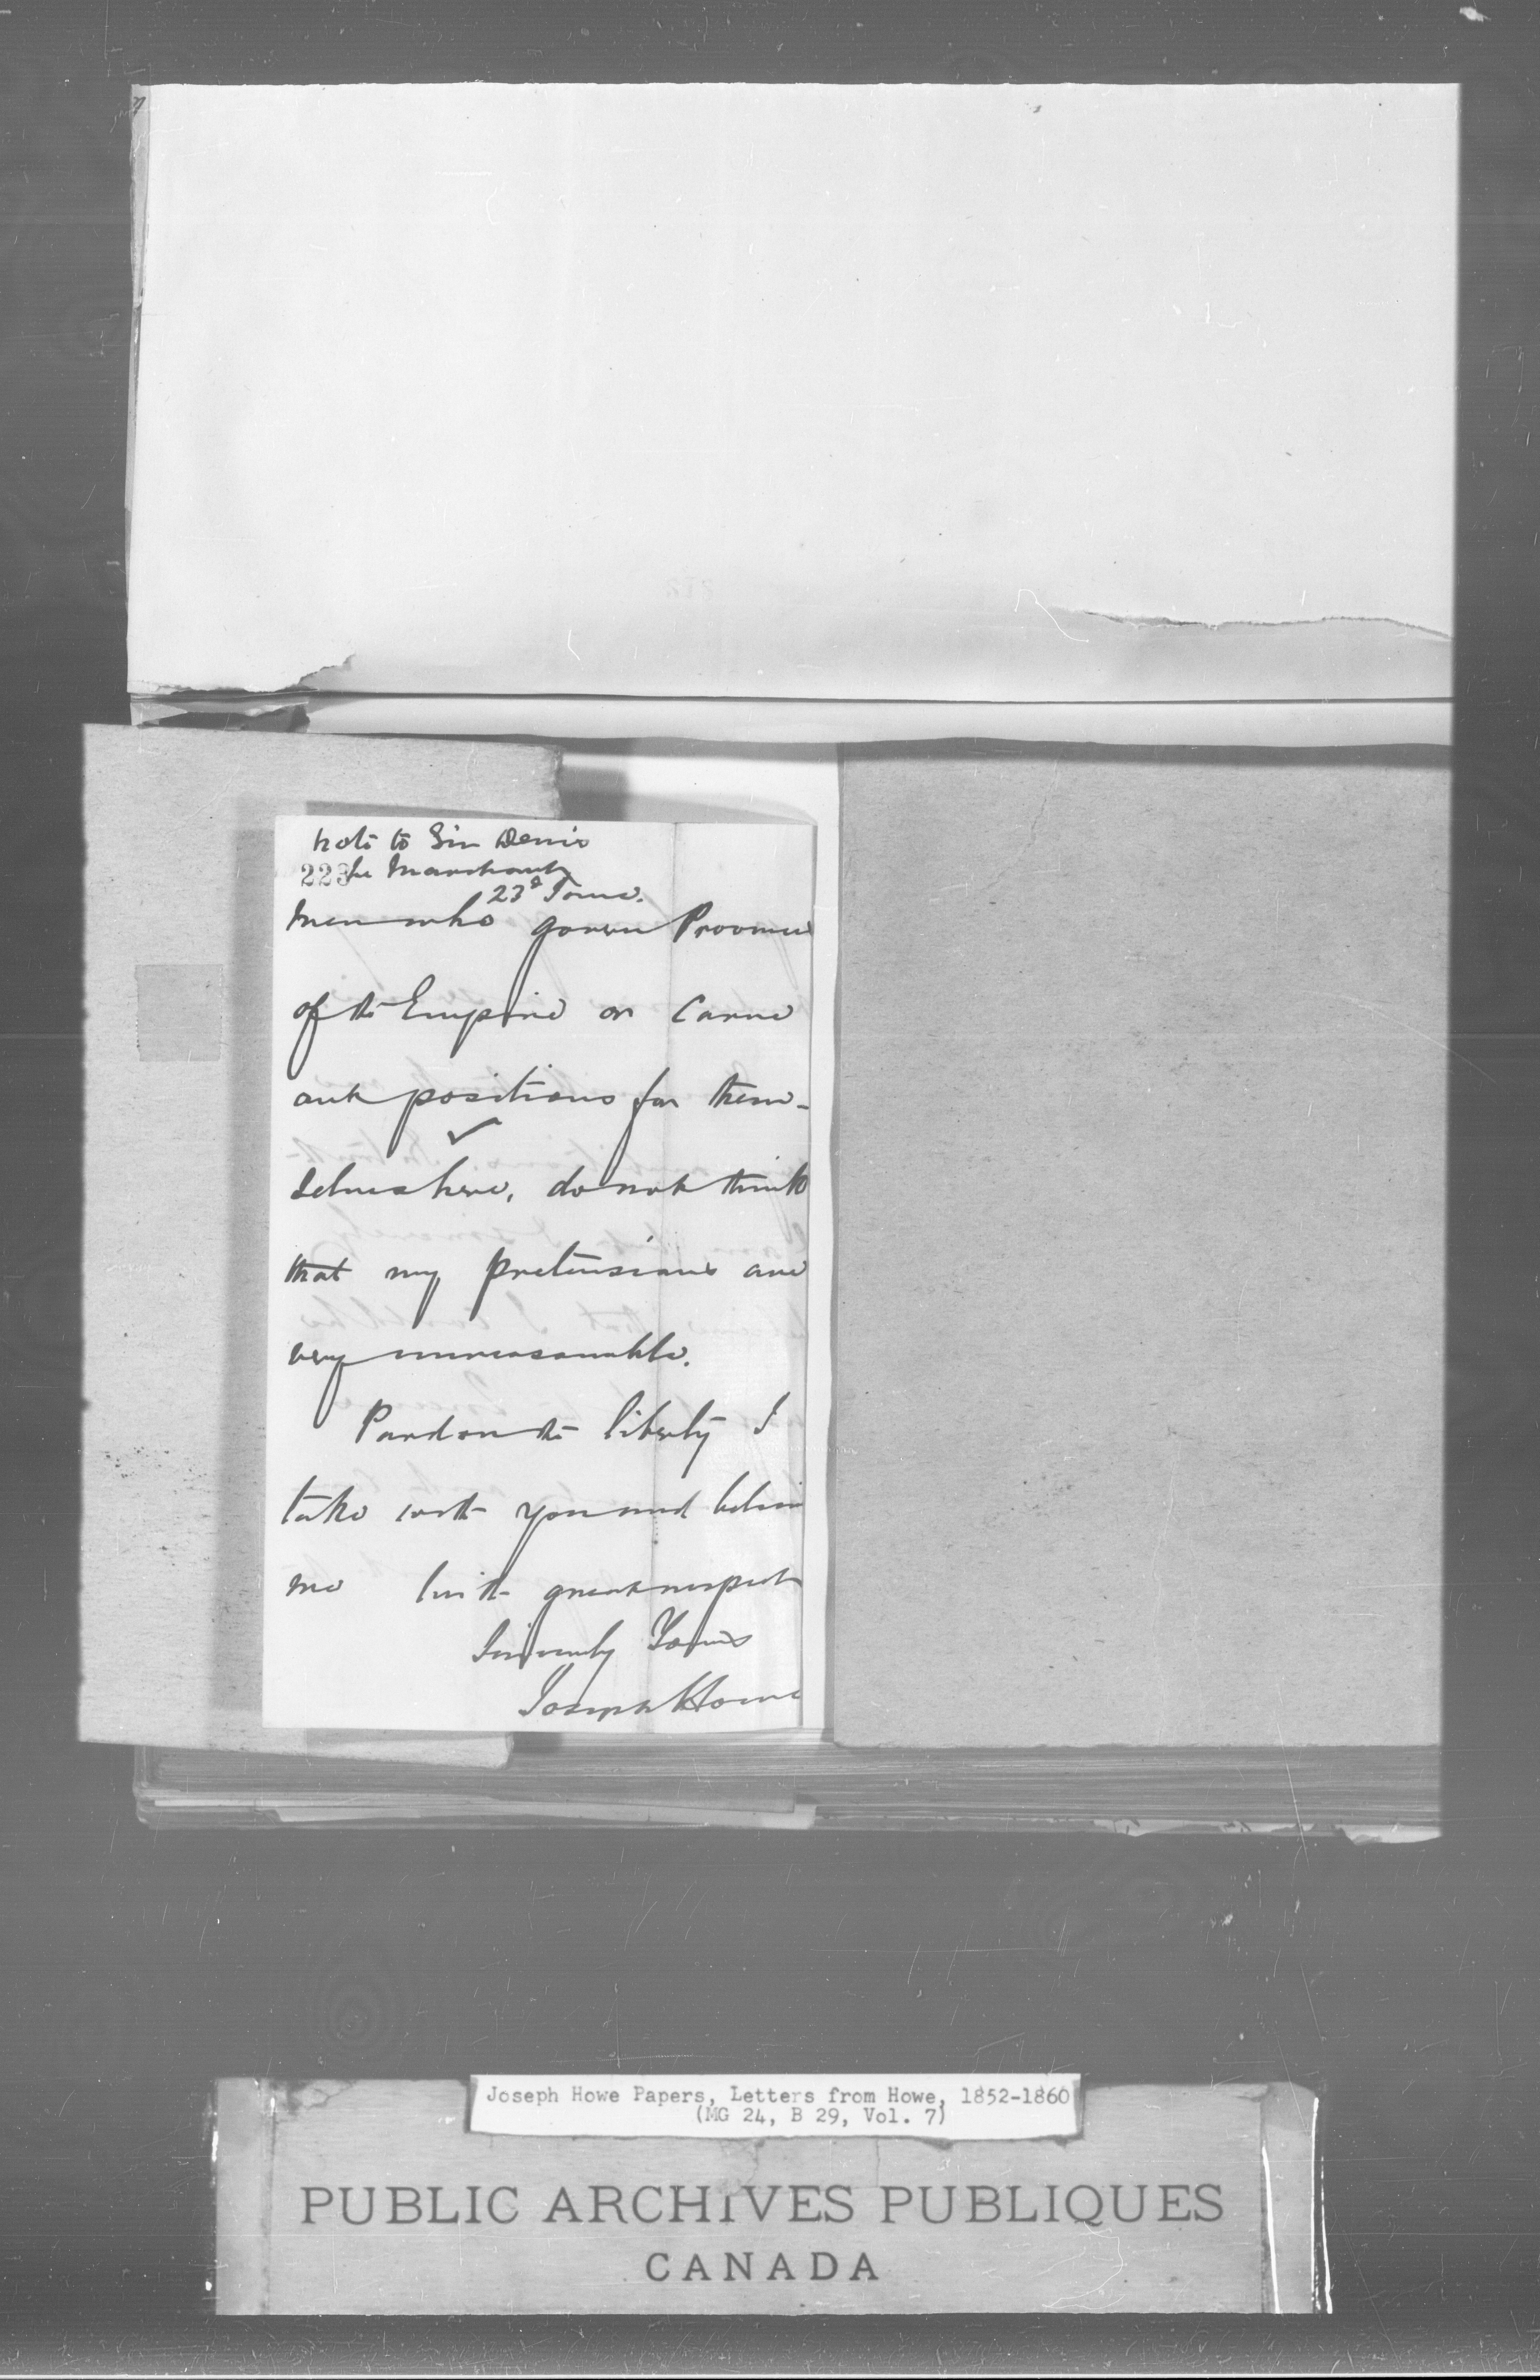 Note to Sir Denis
223 Le Marchant
23d June.
Men who govern Provinces
of the Empire or carve
out positions for them-
selves here, do not think
that my pretensions are
very unreasonable.
Pardon the liberty I
take with you and believe
me with great respect
Sincerely Yours
Joseph Howe
Joseph Howe Papers, Letters from Howe, 1852-1860
(MG 24, B 29, Vol. 7)
PUBLIC ARCHIVES PUBLIQUES
CANADA